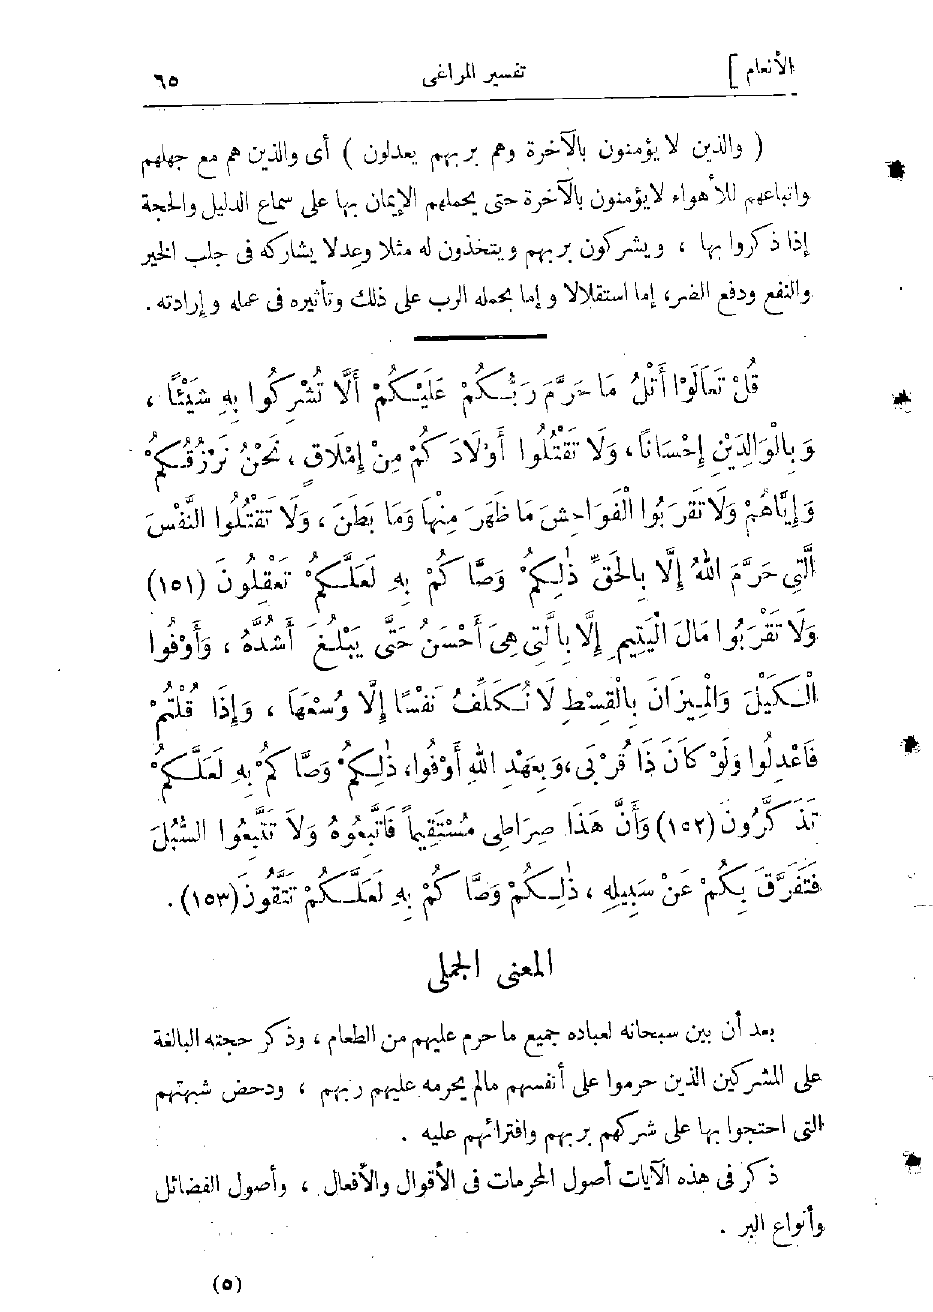 الأنعام ] تفسير المراغى ٦٥
( والذين لا يؤمنون بالآخرة وهم بربهم يعدلون ) أى والذين هم مع جهلهم
واتباعهم للأهواء لا يؤمنون بالآخرة حتى يحملهم الإيمان بها على سماع الدليل والحجة
إذا ذكروا بها ، ويشركون بربهم ويتخذون له مثلا وعدلا يشاركه فى جلب الخير
والنفع ودفع الضر، إما استقلالا وإما بحمله الرب على ذلك وتأثيره فى عمله وإرادته .
قُلْ تَعَالَوْا أَتْلُ مَا حَرَّمَ رَبُّكُمْ عَلَيْكُمْ أَلَّا تُشْرِكُوا بِهِ شَيْئًا ،
وَبِالْوَالِدَيْنِ إِحْسَانًا ، وَلَا تَقْتُلُوا أَوْلَادَكُمْ مِنْ إِمْلَاقٍ ، نَحْنُ نَرْزُقُكُمْ
وَإِيَّاهُمْ وَلَا تَقْرَبُوا الْفَوَاحِشَ مَا ظَهَرَ مِنْهَا وَمَا بَطَنَ ، وَلَا تَقْتُلُوا النَّفْسَ
الَّتِي حَرَّمَ اللهُ إِلَّا بِالْحَقِّ ذٰلِكُمْ وَصَّاكُمْ بِهِ لَعَلَّكُمْ تَعْقِلُونَ (١٥١)
وَلَا تَقْرَبُوا مَالَ الْيَتِيمِ إِلَّا بِالَّتِى هِىَ أَحْسَنُ حَتَّى يَبْلُغَ أَشُدَّهُ ، وَأَوْفُوا
الْكَيْلَ وَالْمِيزَانَ بِالْقِسْطِ لَا نُكَلِّفُ نَفْسًا إِلَّا وُسْعَهَا ، وَإِذَا قُلْتُمْ
فَاعْدِلُوا وَلَوْ كَانَ ذَا قُرْبَى ، وَبِعَهْدِ اللهِ أَوْفُوا، ذٰلِكُمْ وَصَّاكُمْ بِهِ لَعَلَّكُمْ
تَذَكَّرُونَ (١٥٢) وَأَنَّ هَذَا صِرَاطِى مُسْتَقِيماً فَاتَّبِعُوهُ وَلَا تَتَّبِعُوا السُّبُلَ
فَتَفَرَّقَ بِكُمْ عَنْ سَبِيلِهِ ، ذٰلِكُمْ وَصَّاكُمْ بِهِ لَعَلَّكُمْ تَتَّقُونَ (١٥٣) .
المعنى الجملى
بعد أن بين سبحانه لعباده جميع ما حرم عليهم من الطعام ، وذكر حجته البالغة
على المشركين الذين حرموا على أنفسهم مالم يحرمه عليهم ربهم ، ودحض شبهتهم
التى احتجوا بها على شركهم بربهم وافترائهم عليه .
ذكر فى هذه الآيات أصول المحرمات فى الأقوال والأفعال ، وأصول الفضائل
وأنواع البر .
(٥)